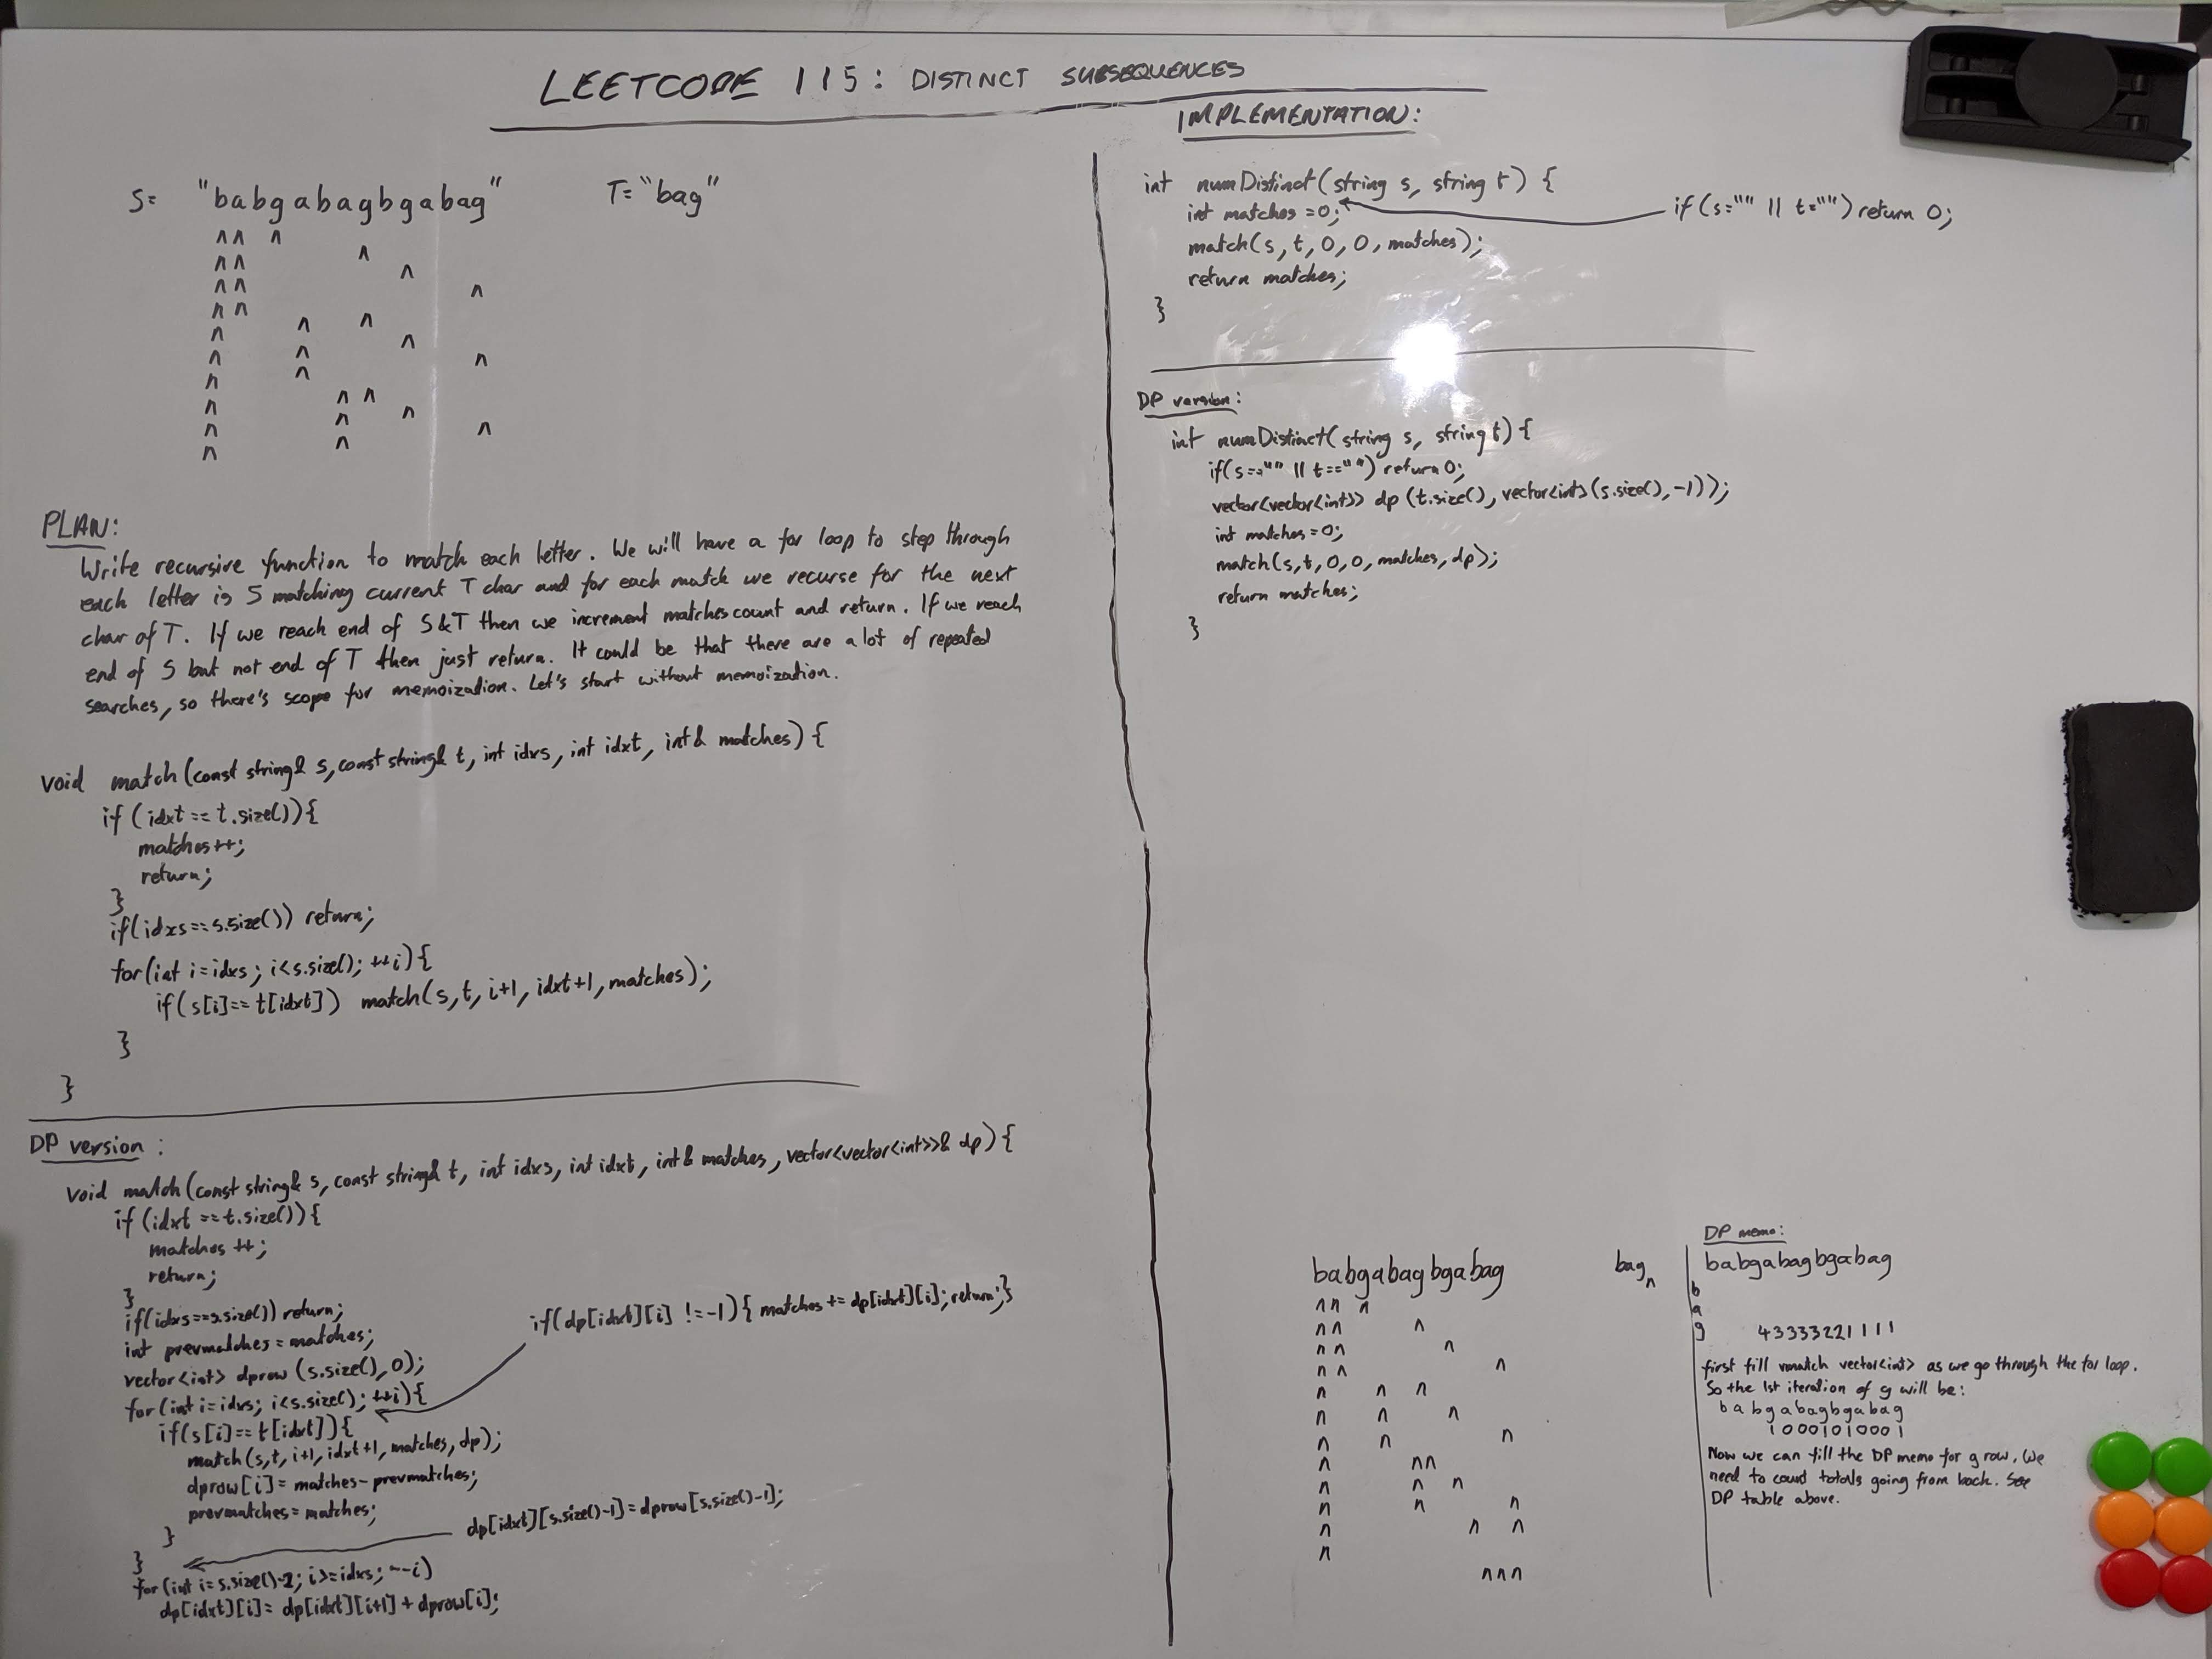 LEETCODE 115: DISTINCT SUBSEQUENCES
S= "babgabagbgabag" T="bag"
PLAN:
Write recursive function to match each letter. We will have a for loop to step through
each letter is S matching current T char and for each match we recurse for the next
char of T. If we reach end of S&T then we increment matches count and return. If we reach
end of S but not end of T then just return. It could be that there are a lot of repeated
searches, so there's scope for memoization. Let's start without memoization.
void match(const string& s, const string& t, int idxs, int idxt, int& matches) {
if (idxt == t.size()){
matches++;
return;
}
if(idxs==s.size()) return;
for(int i=idxs; i<s.size(); ++i){
if(s[i]==t[idxt]) match(s,t,i+1, idxt+1, matches);
}
}
DP version:
void match(const string& s, const string& t, int idxs, int idxt, int& matches, vector<vector<int>>& dp) {
if (idxt ==t.size()){
matches ++;
return;
}
if(idxs==s.size()) return;
int prevmatches = matches;
vector<int> dprow (s.size(), 0);
for(int i=idxs; i<s.size(); ++i){
if(dp[idxt][i] != -1){ matches += dp[idxt][i]; return; }
if(s[i]==t[idxt]){
match(s,t,i+1, idxt+1, matches, dp);
dprow[i]= matches-prevmatches;
prevmatches= matches;
}
}
dp[idxt][s.size()-1]=dprow[s.size()-1];
for(int i=s.size()-2; i>=idxs; --i)
dp[idxt][i]= dp[idxt][i+1] + dprow[i];
IMPLEMENTATION:
int numDistinct(string s, string t) {
int matches =0;
if(s="" || t="") return 0;
match(s, t, 0, 0, matches);
return matches;
}
DP version:
int numDistinct(string s, string t) {
if(s=="" || t=="") return 0;
vector<vector<int>> dp (t.size(), vector<int>(s.size(), -1));
int matches =0;
match(s,t,0,0, matches, dp);
return matches;
}
babgabagbgabag bag
DP memo:
babgabagbgabag
b
a
g 43333221111
first fill vmatch vector<int> as we go through the for loop.
So the 1st iteration of g will be:
babgabagbgabag
10001010001
Now we can fill the DP memo for g row. We
need to count totals going from back. See
DP table above.